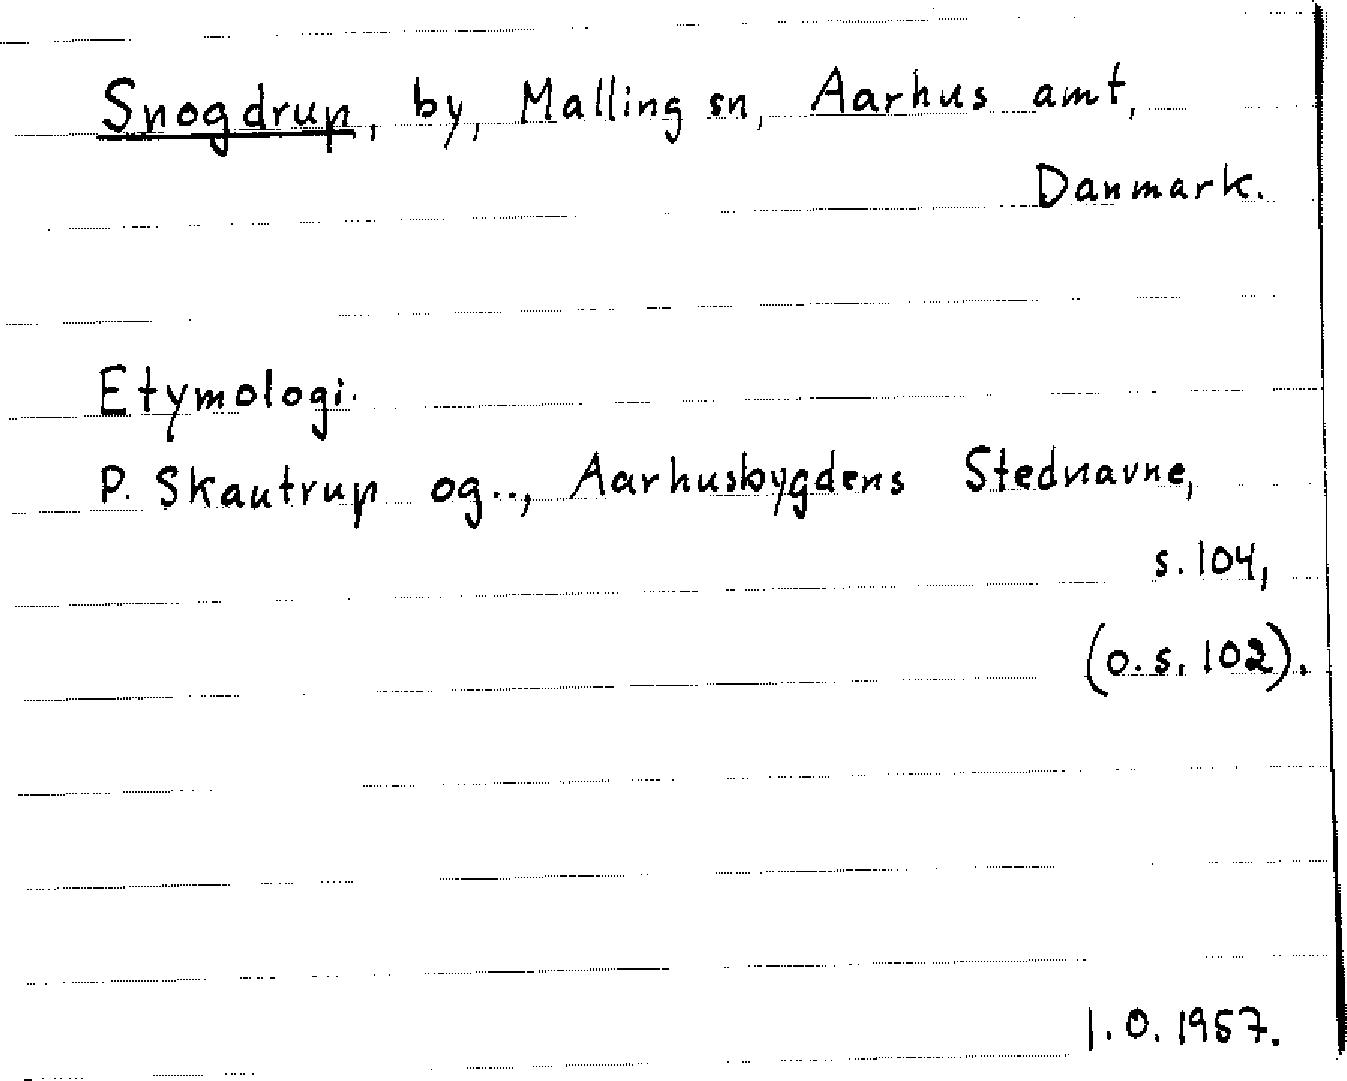 Snogdrup, by, Malling sn, Aarhus amt,
Danmark.
Etymologi.
P. Skautrup og.., Aarhusbygdens Stednavne,
s. 104,
(o.s. 102).
1.0. 1957.